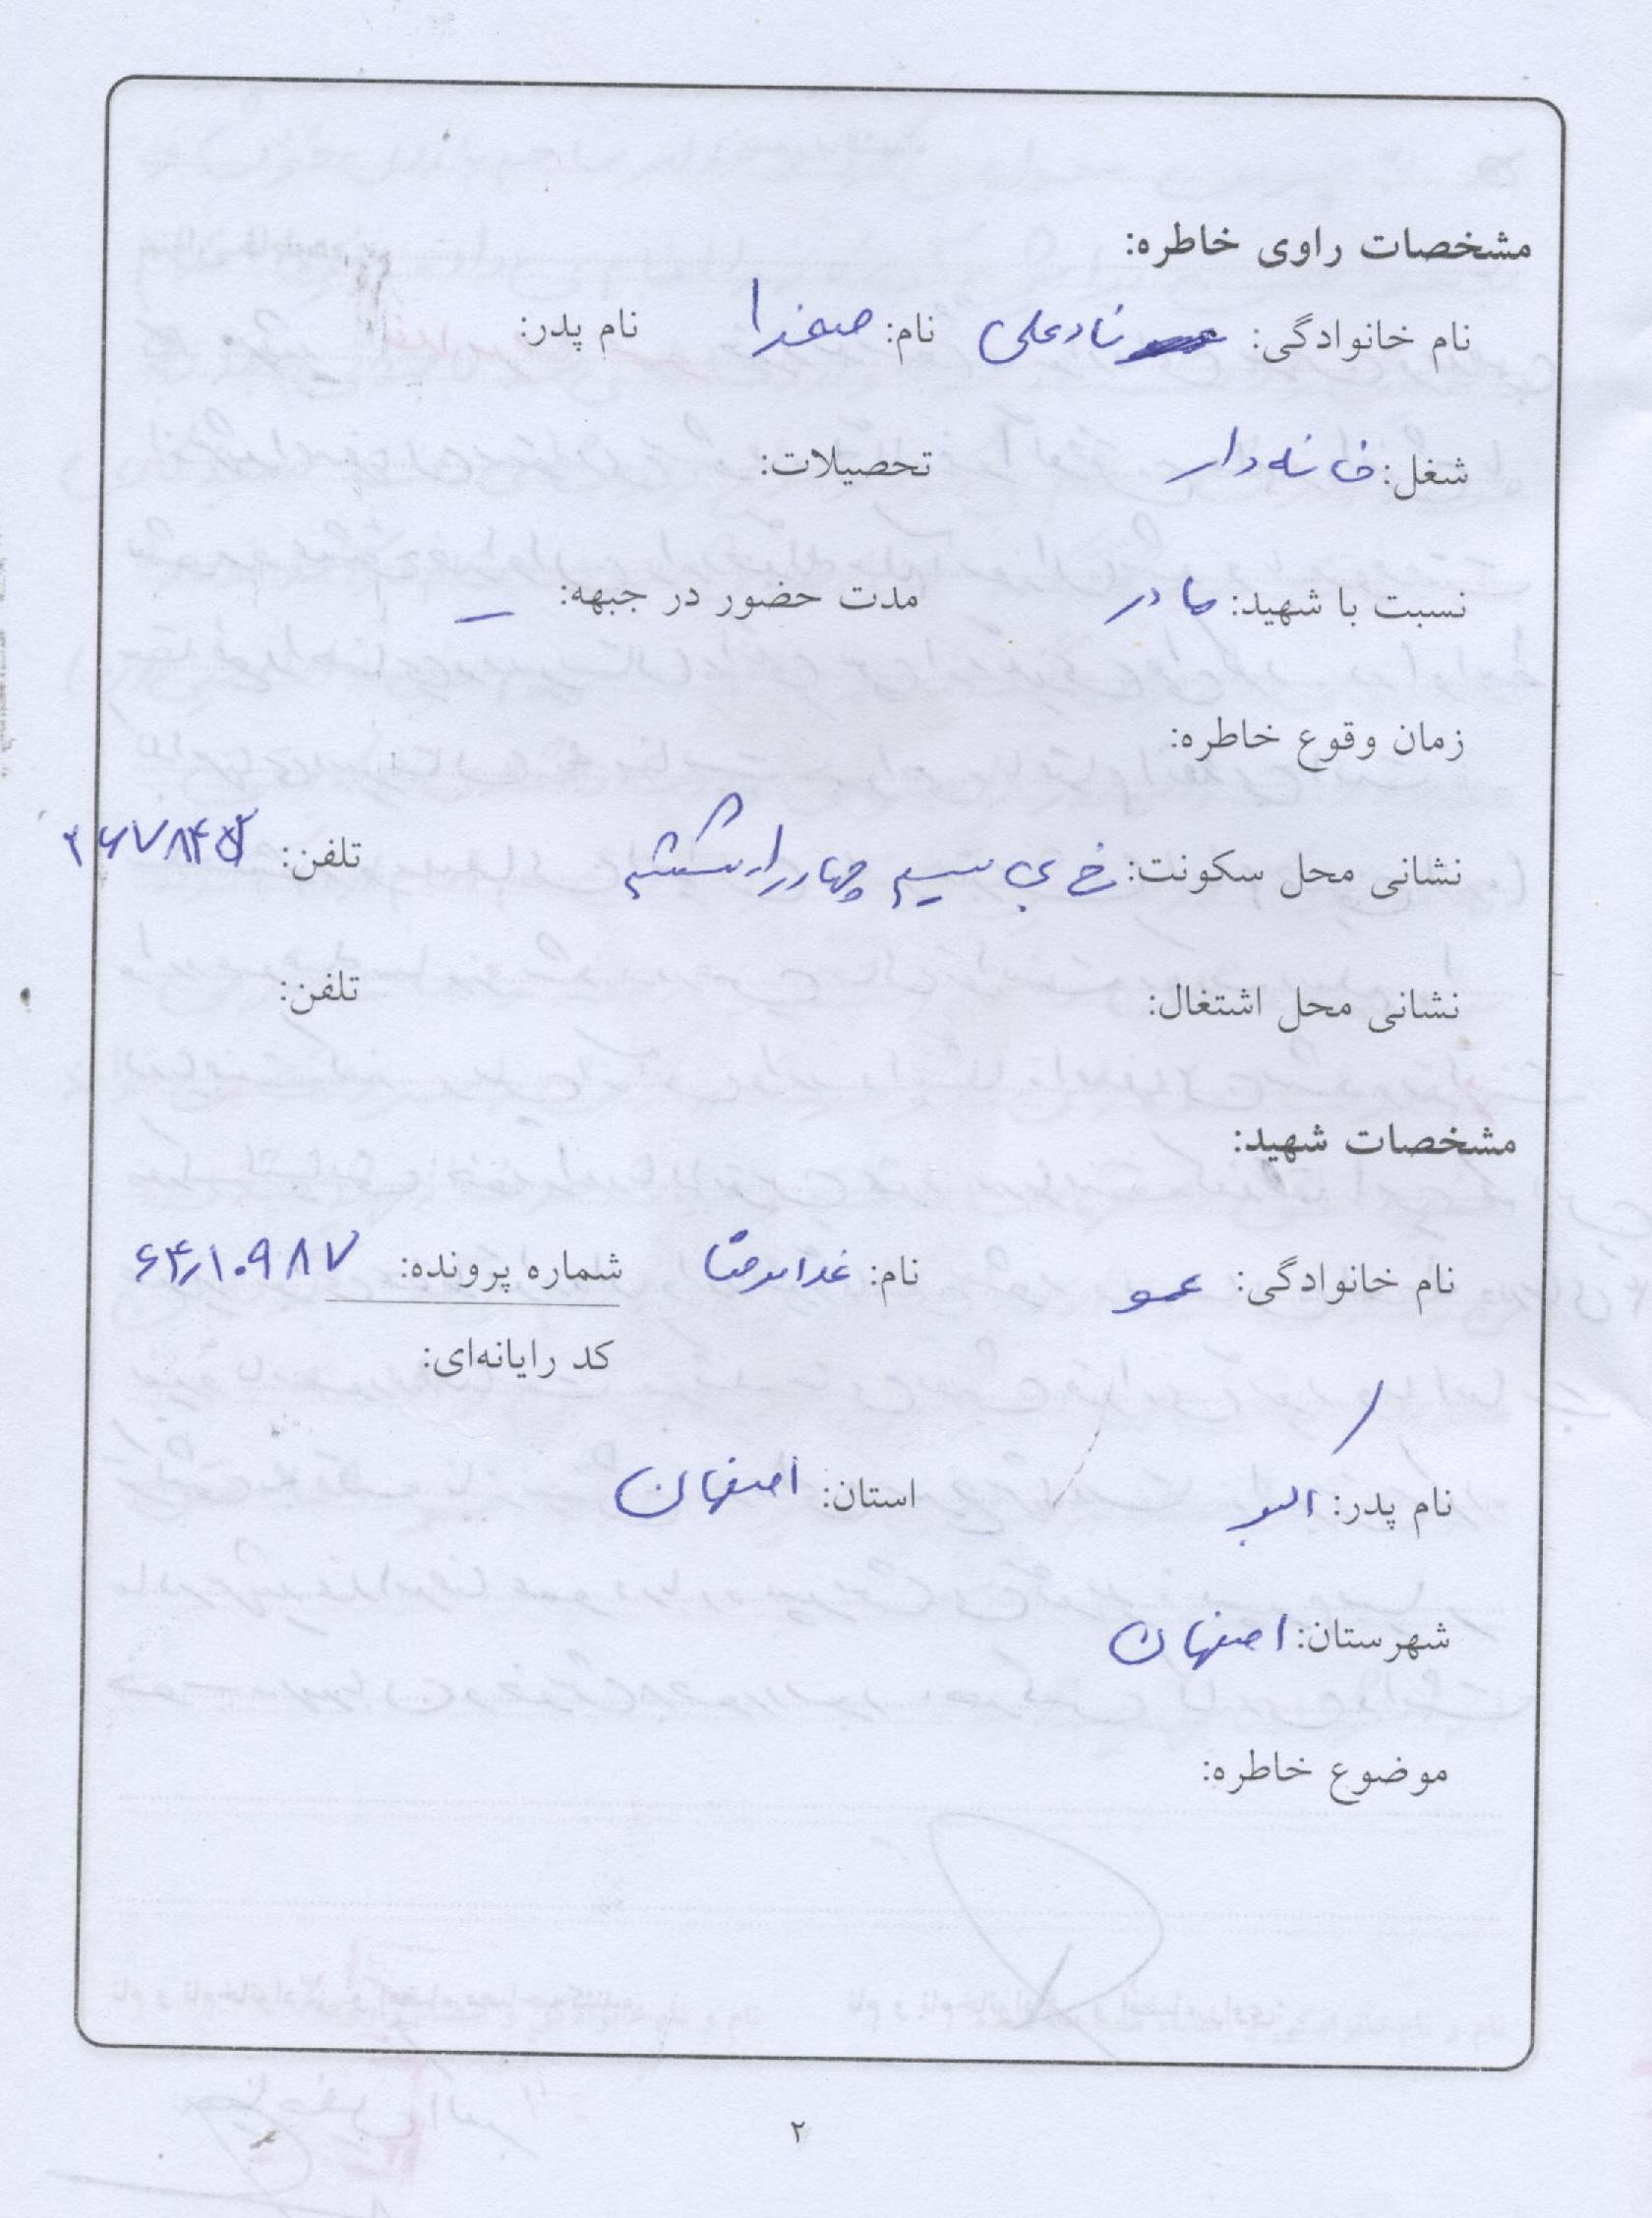 مشخصات راوی خاطره:
نام خانوادگی: نادعلی نام: صغرا نام پدر:
شغل: خانه دار تحصیلات:
نسبت با شهید: مادر مدت حضور در جبهه: –
زمان وقوع خاطره:
نشانی محل سکونت: خ بی سیم چهارراه ششم تلفن:
نشانی محل اشتغال: تلفن:
مشخصات شهید:
نام خانوادگی: عمو نام: غلامرضا شماره پرونده: ۶۴٫۱۰۹۸۷
کد رایانه‌ای:
نام پدر: اکبر استان: اصفهان
شهرستان: اصفهان
موضوع خاطره:
۲